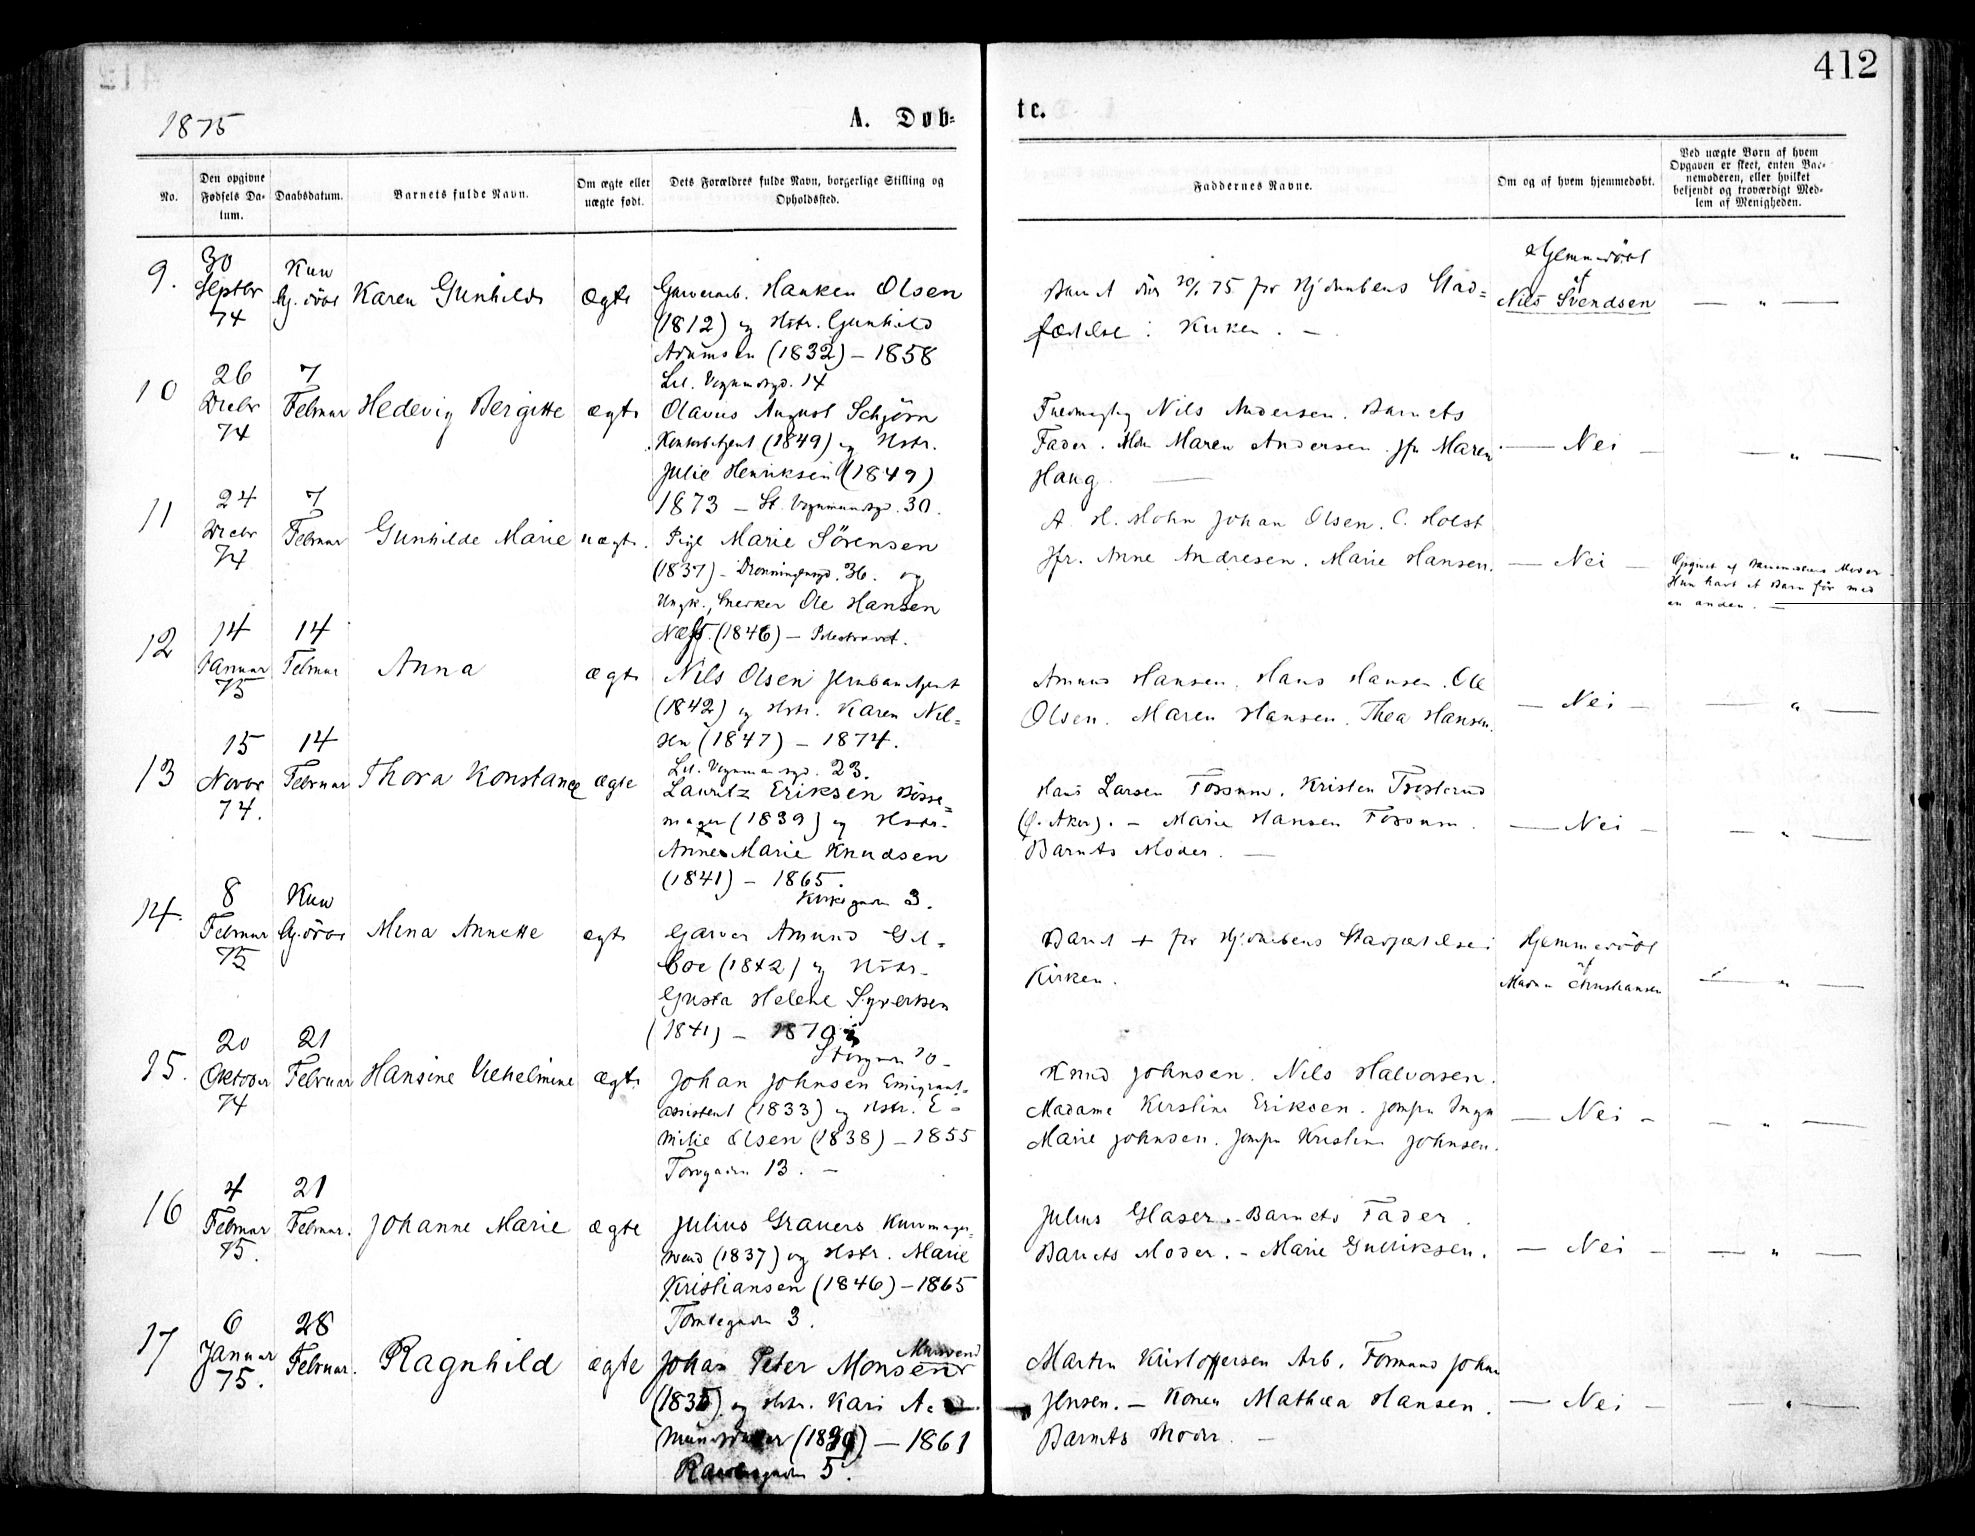 412
1875
A. Døb=
te.
No.
Den opgivne Fødsels Da-tum.
Daabsdatum.
Barnets fulde Navn.
Om ægte eller uægte født.
Dets Forældres fulde Navn, borgerlige Stilling og Opholdssted.
Faddernes Navne.
Om og af hvem hjemmedøbt.
Ved uægte Børn af hvem Opgaven er skeet, enten Bar-nemoderen, eller hvilket bekjendt og troværdigt Med-lem af Menigheden.
9.
30
Septbr
74
Kun
hj. døbt
Karen Gunhilde
ægte
Hanken Olsen
(1812) og Hstr. Gunhild
(1832) – 1858
Lil. Vognmdsgd. 14
Barnet 75 for Hj.daabens Stad=
fæstelse i Kirken. –
Hjemmedöbt
af
Nils Svendsen
— " —
10
26
Decbr
74
7
Februar
Hedevig Bergitte
ægte
Olavus August Schjörn
Kontorbetjent (1849) og Hstr.
Julie Henriksen (1849)
1873 – St. Vognmandsgd. 30.
Fuldmægtig Nils Andersen. Barnets
Fader. Mdm Maren Andersen. Jfr Maren
Haug. —
— Nei –
— " —
11
24
Decbr
74
7
Februar
Gunhilde Marie
uægte.
Pige Marie Sörensen
(1837) – Dronningensgd. 36. og
Ungk., Snerker Ole Hansen
Næss. (1846) – Pilestrædet.
A. H. Hohn Johan Olsen. C. Holst
Jfr. Anne Andresen. Marie Hansen.
— Nei —
Opgivet af Barnets Moder –
Hun havt et Barn för med
en anden. —
12
14
Januar
75
14
Februar
Anna
ægte
Nils Olsen Jernbanebetjent
(1842) og Hstr. Karen Nil-
sen (1847) – 1874.
Lil. Vognmandsgd. 23.
Amund Hansen. Hans Hansen. Ole
Olsen. Maren Hansen. Thea Hansen.
— Nei –
— " —
13
15
Novbr
74.
14
Februar
Thora Konstance
ægte
Lauritz Eriksen Bösse=
mager (1839) og Hstr.
Anne Marie Knudsen
(1841) – 1865.
Kirkegaden 3.
Hans Larsen Fossum. Kristen
(Ø. Aker). – Marie Hansen Fossum.
Barnets Moder. —
— Nei –
— " —
14.
8
Februar
75
Kun
hj.döbt
Mina Annette
ægte
Garver Amund Gul-
boe (1842) og Hstr.
Gusta Helene Syvertsen
(1841) – 1870
Storgaden 70 –
Barnet + för Hj.daabens Stadfæstelse i
Kirken.
Hjemmedöbt
af
Madam Christiansen
— " —
15.
20
Oktober
74
21
Februar
Hansine Vilhelmine
ægte
Johan Johnsen Emigrant-
assistent (1833) og Hstr. E-
milie Olsen (1838) – 1855
Torvgaden 13. –
Knud Johnsen. Nils Halvorsen.
Madame Kirstine Eriksen. Jomfru
Marie Johnsen. Jomfr Kristine Johnsen.
— Nei –
– " —
16
4
Februar
75.
21
Februar.
Johanne Marie
ægte
Julius Grauers Kurvmager-
svend (1837) og Hstr. Marie
Kristiansen (1846) – 1865
Tomtegaden 3.
Julius Glaser. – Barnets Fader.
Barnets Moder. – Marie Gulliksen.
— Nei –
— " —
17
6
Januar
75.
28
Februar.
Ragnhild
ægte
Murersvend
Johan Peter Monsen
(1835) og Hstr. Kari A-
mundsdatter – 1861
5.
Martin Kristoffersen Arb. Formand Johan
Jensen. – Konen Mathea Hansen.
Barnets Moder. –
— Nei –
— " —